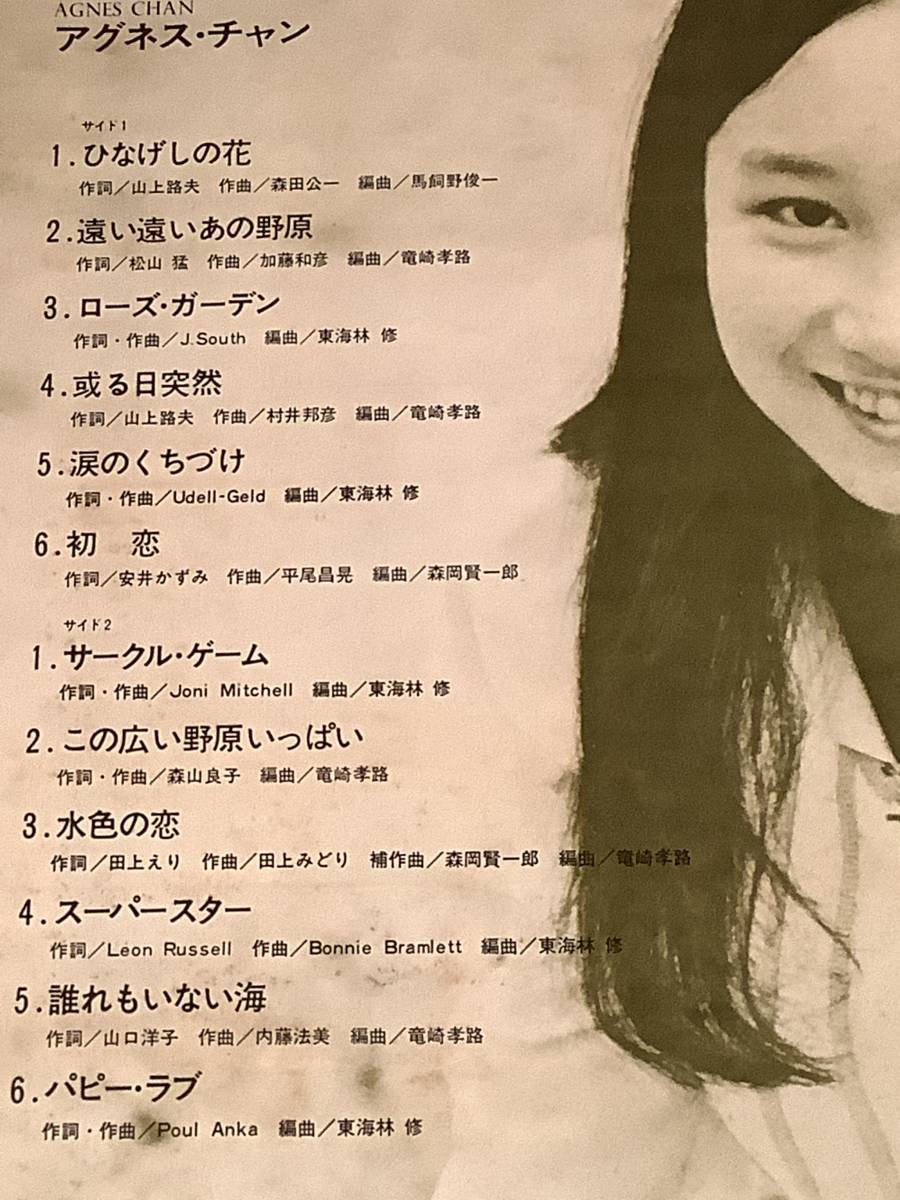 AGNES CHAN
アグネス・チャン
サイド1
1.ひなげしの花
作詞／山上路夫 作曲／森田公一 編曲／馬飼野俊一
2.遠い遠いあの野原
作詞／松山 猛 作曲／加藤和彦 編曲／竜崎孝路
3.ローズ・ガーデン
作詞・作曲／J.South 編曲／東海林 修
4.或る日突然
作詞／山上路夫 作曲／村井邦彦 編曲／竜崎孝路
5.涙のくちづけ
作詞・作曲／Udell-Geld 編曲／東海林 修
6.初 恋
作詞／安井かずみ 作曲／平尾昌晃 編曲／森岡賢一郎
サイド2
1.サークル・ゲーム
作詞・作曲／Joni Mitchell 編曲／東海林 修
2.この広い野原いっぱい
作詞・作曲／森山良子 編曲／竜崎孝路
3.水色の恋
作詞／田上えり 作曲／田上みどり 補作曲／森岡賢一郎 編曲／竜崎孝路
4.スーパースター
作詞／Leon Russell 作曲／Bonnie Bramlett 編曲／東海林 修
5.誰れもいない海
作詞／山口洋子 作曲／内藤法美 編曲／竜崎孝路
6.パピー・ラブ
作詞・作曲／Poul Anka 編曲／東海林 修